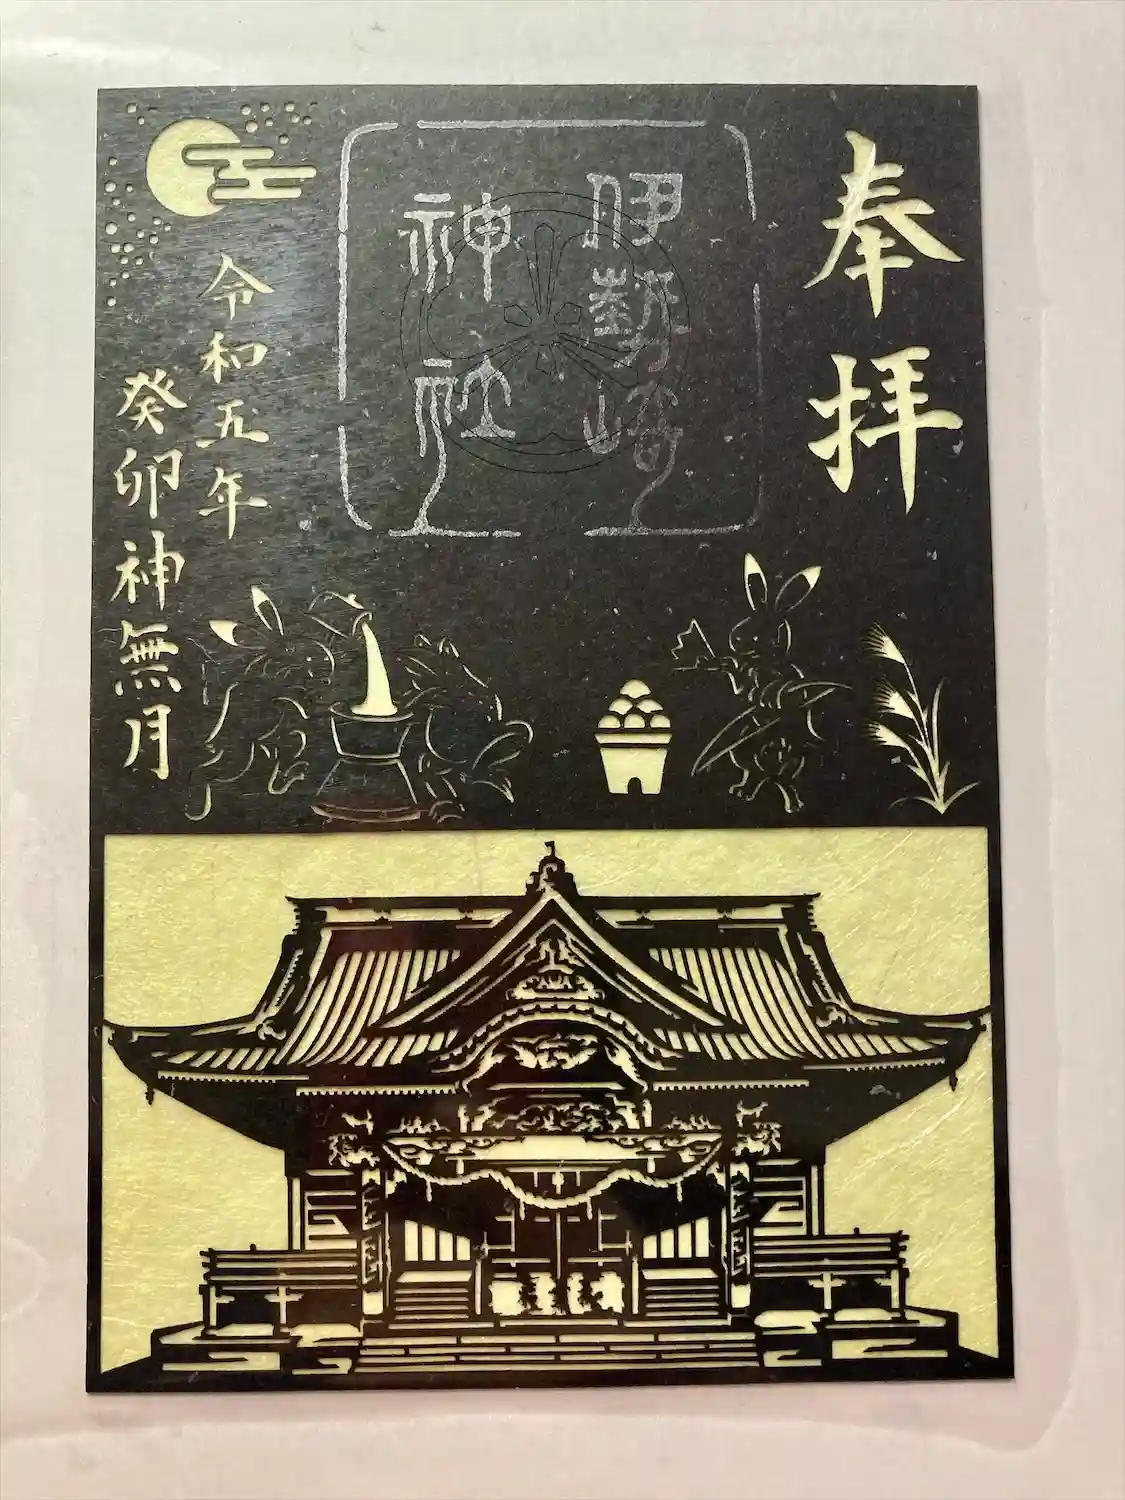 奉拝
伊勢崎
神社
令和五年
癸卯神無月